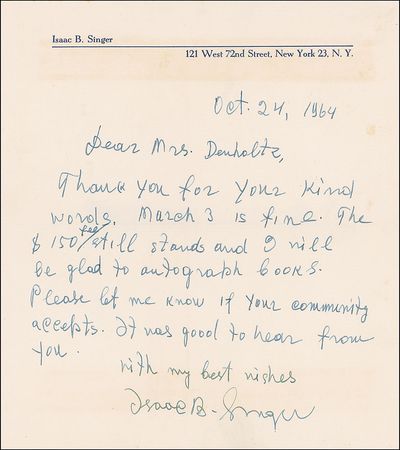 Isaac B. Singer
121 West 72nd Street, New York 23, N. Y.
Oct. 24, 1964
Dear Mrs. Denholtz,
Thank you for your kind
words. March 3 is fine. The
$ 150 fee still stands and I will
be glad to autograph books.
Please let me know if your community
accepts. It was good to hear from
you.
with my best wishes
Isaac B. Singer